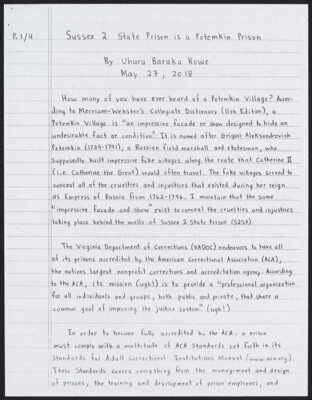 P. 1/4
Sussex 2 State Prison is a Potemkin Prison
By Uhuru Baraka Rowe
May 27, 2018
How many of you have ever heard of a Potemkin Village? Accor-
ding to Merriam-Webster's Collegiate Dictionary (11th Edition), a
Potemkin Village is "an impressive facade or show designed to hide an
undesirable fact or condition". It is named after Grigori Aleksandrovich
Potemkin (1739-1791), a Russian field marshall and statesman, who
supposedly built impressive fake villages along the route that Catherine II
(i.e. Catherine the Great) would often travel. The fake villages served to
conceal all of the cruelties and injustices that existed during her reign
as Empress of Russia from 1762-1796. I maintain that the same
"impressive facade and show" exist to conceal the cruelties and injustices
taking place behind the walls of Sussex 2 State Prison (S2SP).
The Virginia Department of Corrections (VADOC) endeavors to have all
of its prisons accredited by the American Correctional Association (ACA),
the nations largest nonprofit corrections and accreditation agency. According
to the ACA, its mission (ugh!) is to provide a "professional organization
for all individuals and groups, both public and private, that share a
common goal of improving the justice system." (ugh!)
In order to become fully accredited by the ACA, a prison
must comply with a multitude of ACA Standards set forth in its
Standards for Adult Correctional Institutions Manual (www.aca.org).
These Standards covers everything from the management and design
of prisons, the training and development of prison employees, and